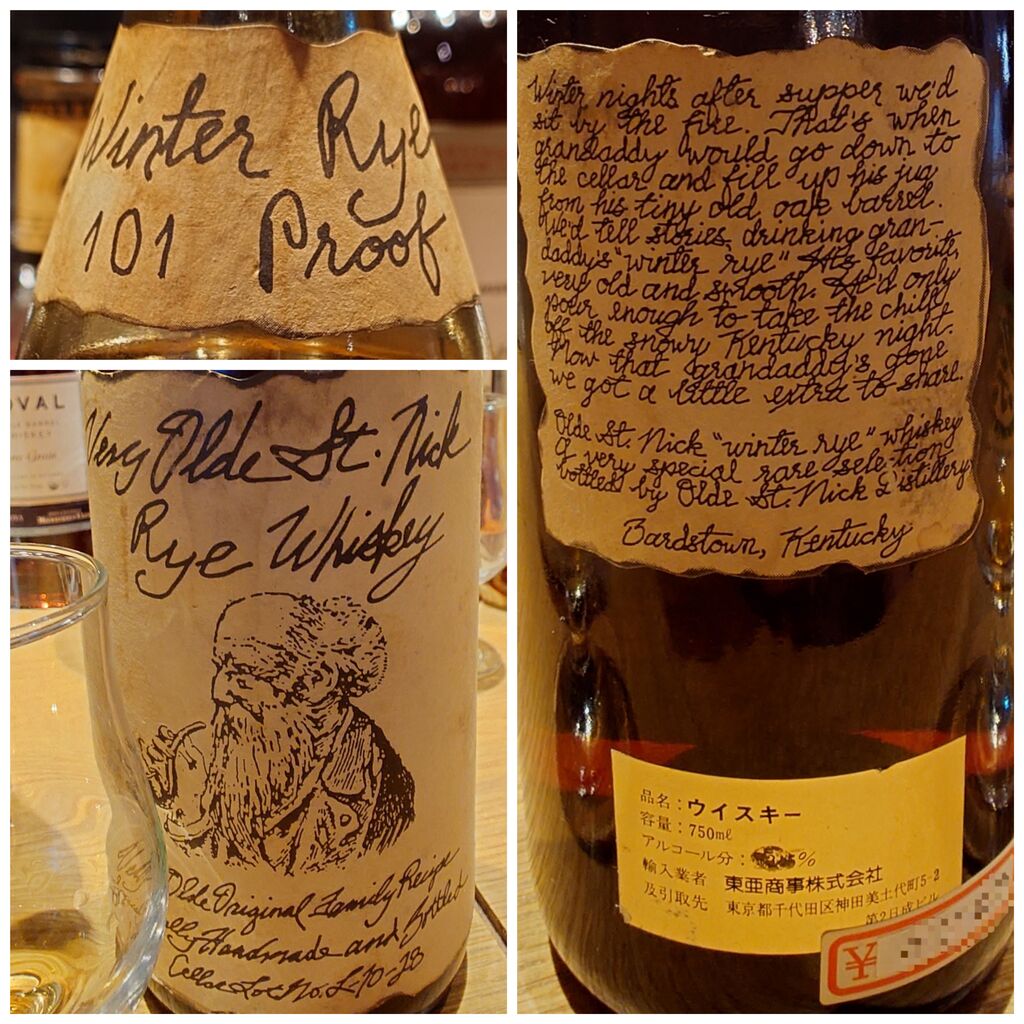 Winter Rye
101 Proof
OVAL
Very Olde St. Nick
Rye Whiskey
Olde Original Family Recipe
Handmade and Bottled
Cellar Lot No. L-70-28
Winter nights after supper we'd
sit by the fire. That's when
grandaddy would go down to
the cellar and fill up his jug
from his tiny old oak barrel.
We'd tell stories, drinking gran-
daddy's "winter rye" His favorite,
very old and smooth. He'd only
pour enough to take the chill
off the snowy Kentucky night.
Now that grandaddy's gone
we got a little extra to share.
Olde St. Nick "winter rye" whiskey
a very special rare selection
bottled by Olde St. Nick Distillery
Bardstown, Kentucky
品名：ウイスキー
容量：750mℓ
アルコール分： %
輸入業者 東亜商事株式会社
及引取先 東京都千代田区神田美土代町5-2
第2日成ビル
¥